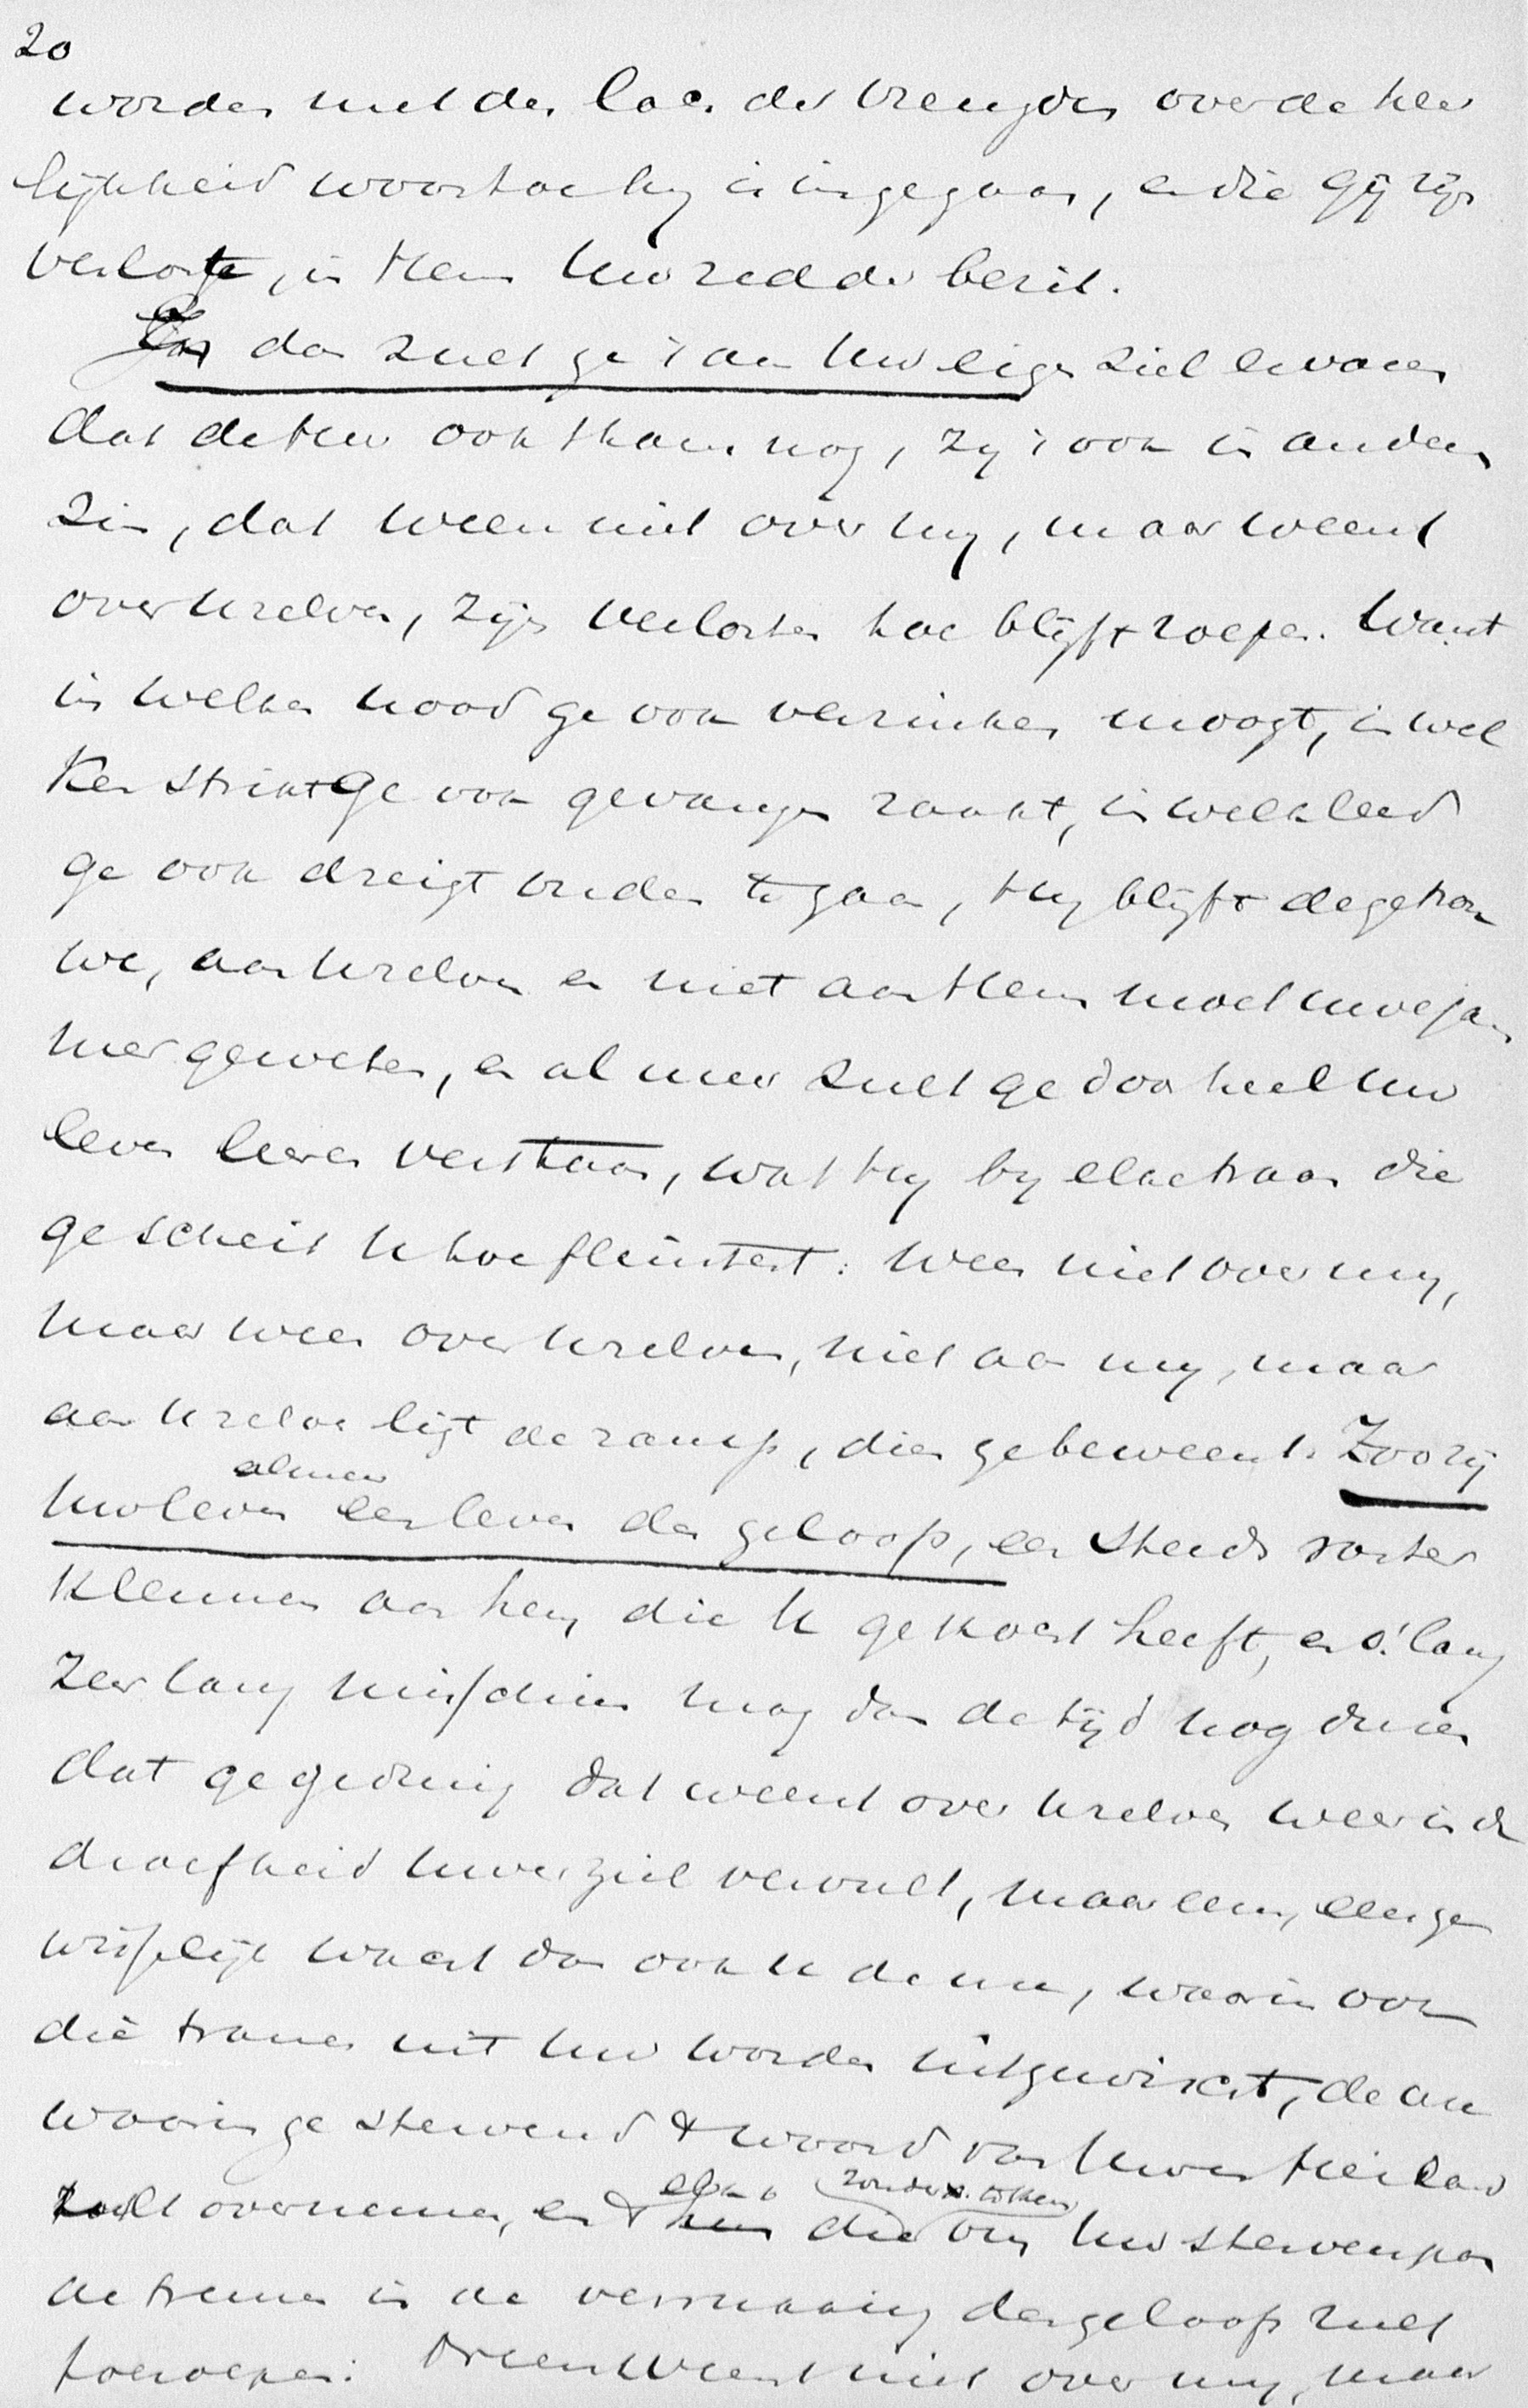 20
worden met den lach der vreugde over de heer
lijkheid waartoe hij is ingegaan, en die gij zijn
verloste, in Hem Uw redder bezit.
En dan zult ge 't aan Uw eigen ziel ervaren
dat de Heer ook thans nog, zij 't ook in anderen
zin, dat ween niet over mij, maar weent
over Uzelven, zijn verlosten toe blijft roepen. Want
in welken nood ge ook verzinken moogt, in wel
ken strik ge ook gevangen raakt, in welk leed
ge ook dreigt onder te gaan, Hij blijft de getrou
we, aan Uzelven en niet aan Hem moet Uw jam
mer geweten, en al meer zult ge door heel Uw
leven leeren verstaan, wat Hij bij elke traan die
ge schreit U toefluistert: Ween niet over mij,
maar ween over Uzelven, niet aan mij, maar
aan Uzelve ligt de ramp, dien ge beweent. Zoo zij
almeer
Uw leven een leven des geloofs, een steeds vaster
klemmen aan hem, die U gekocht heeft, en o! lang
zeer lang misschien mag dan de tijd nog duren
dat ge gedurig dat weent over Uzelven weer in de
droefheid Uwer ziel vervult, maar eens, eens ge
wisselijk wacht dan ook U de ure, waarin ook
die tranen uit Uw worden uitgewischt, de ure
waarin ge stervend 't woord van Uwen Heiland
zult overnemen, en 't hun die om Uw stervenspon
de treuren in de verrukking des geloofs zult
toeroepen: Weent niet over mij, maar